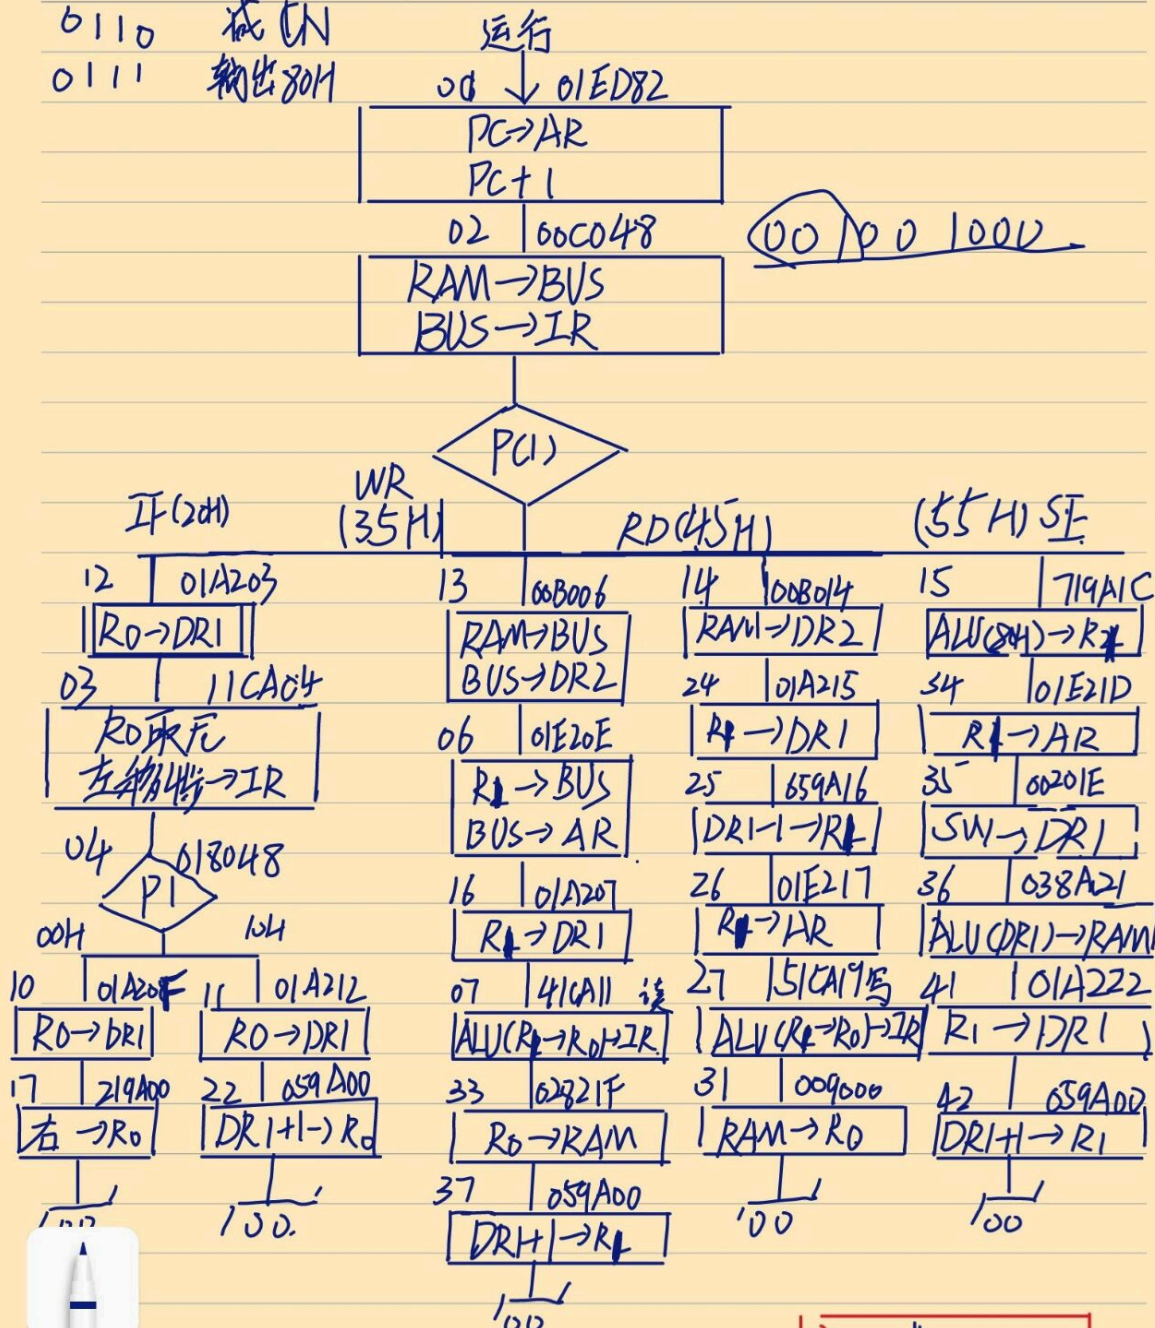 0110 减 CN
0111 输出80H
运行
00 01ED82
PC→AR
PC+1
02 00C048
00100 1000
RAM→BUS
BUS→IR
P(1)
IF(20H)
WR
(35H)
RD(45H)
(55H) SI
12 01A203
R0→DRI
03 11CA04
R0取反
左移4步→IR
04 018048
P1
00H 10H
10 01A20F
R0→DRI
17 219A00
右→R0
11 01A212
R0→DRI
22 059A00
DRI+1→R0
100.
13 00B006
RAM→BUS
BUS→DR2
06 01E20E
R1→BUS
BUS→AR
16 01A207
R1→DRI
07 41CA11 读
ALU(R1→R0)→IR
33 02821F
R0→RAM
37 059A00
DRI+1→R1
14 00B014
RAM→DR2
24 01A215
R1→DRI
25 659A16
DRI-1→R1
26 01E217
R1→AR
27 51CA19写
ALU(R1→R0)→IR
31 009000
RAM→R0
'00
15 719A1C
ALU(84H)→R1
34 01E21D
R1→AR
35 00201E
SW→DRI
36 038A21
ALU(DRI)→RAM
41 01A222
R1→DRI
42 059A00
DRI+1→R1
100